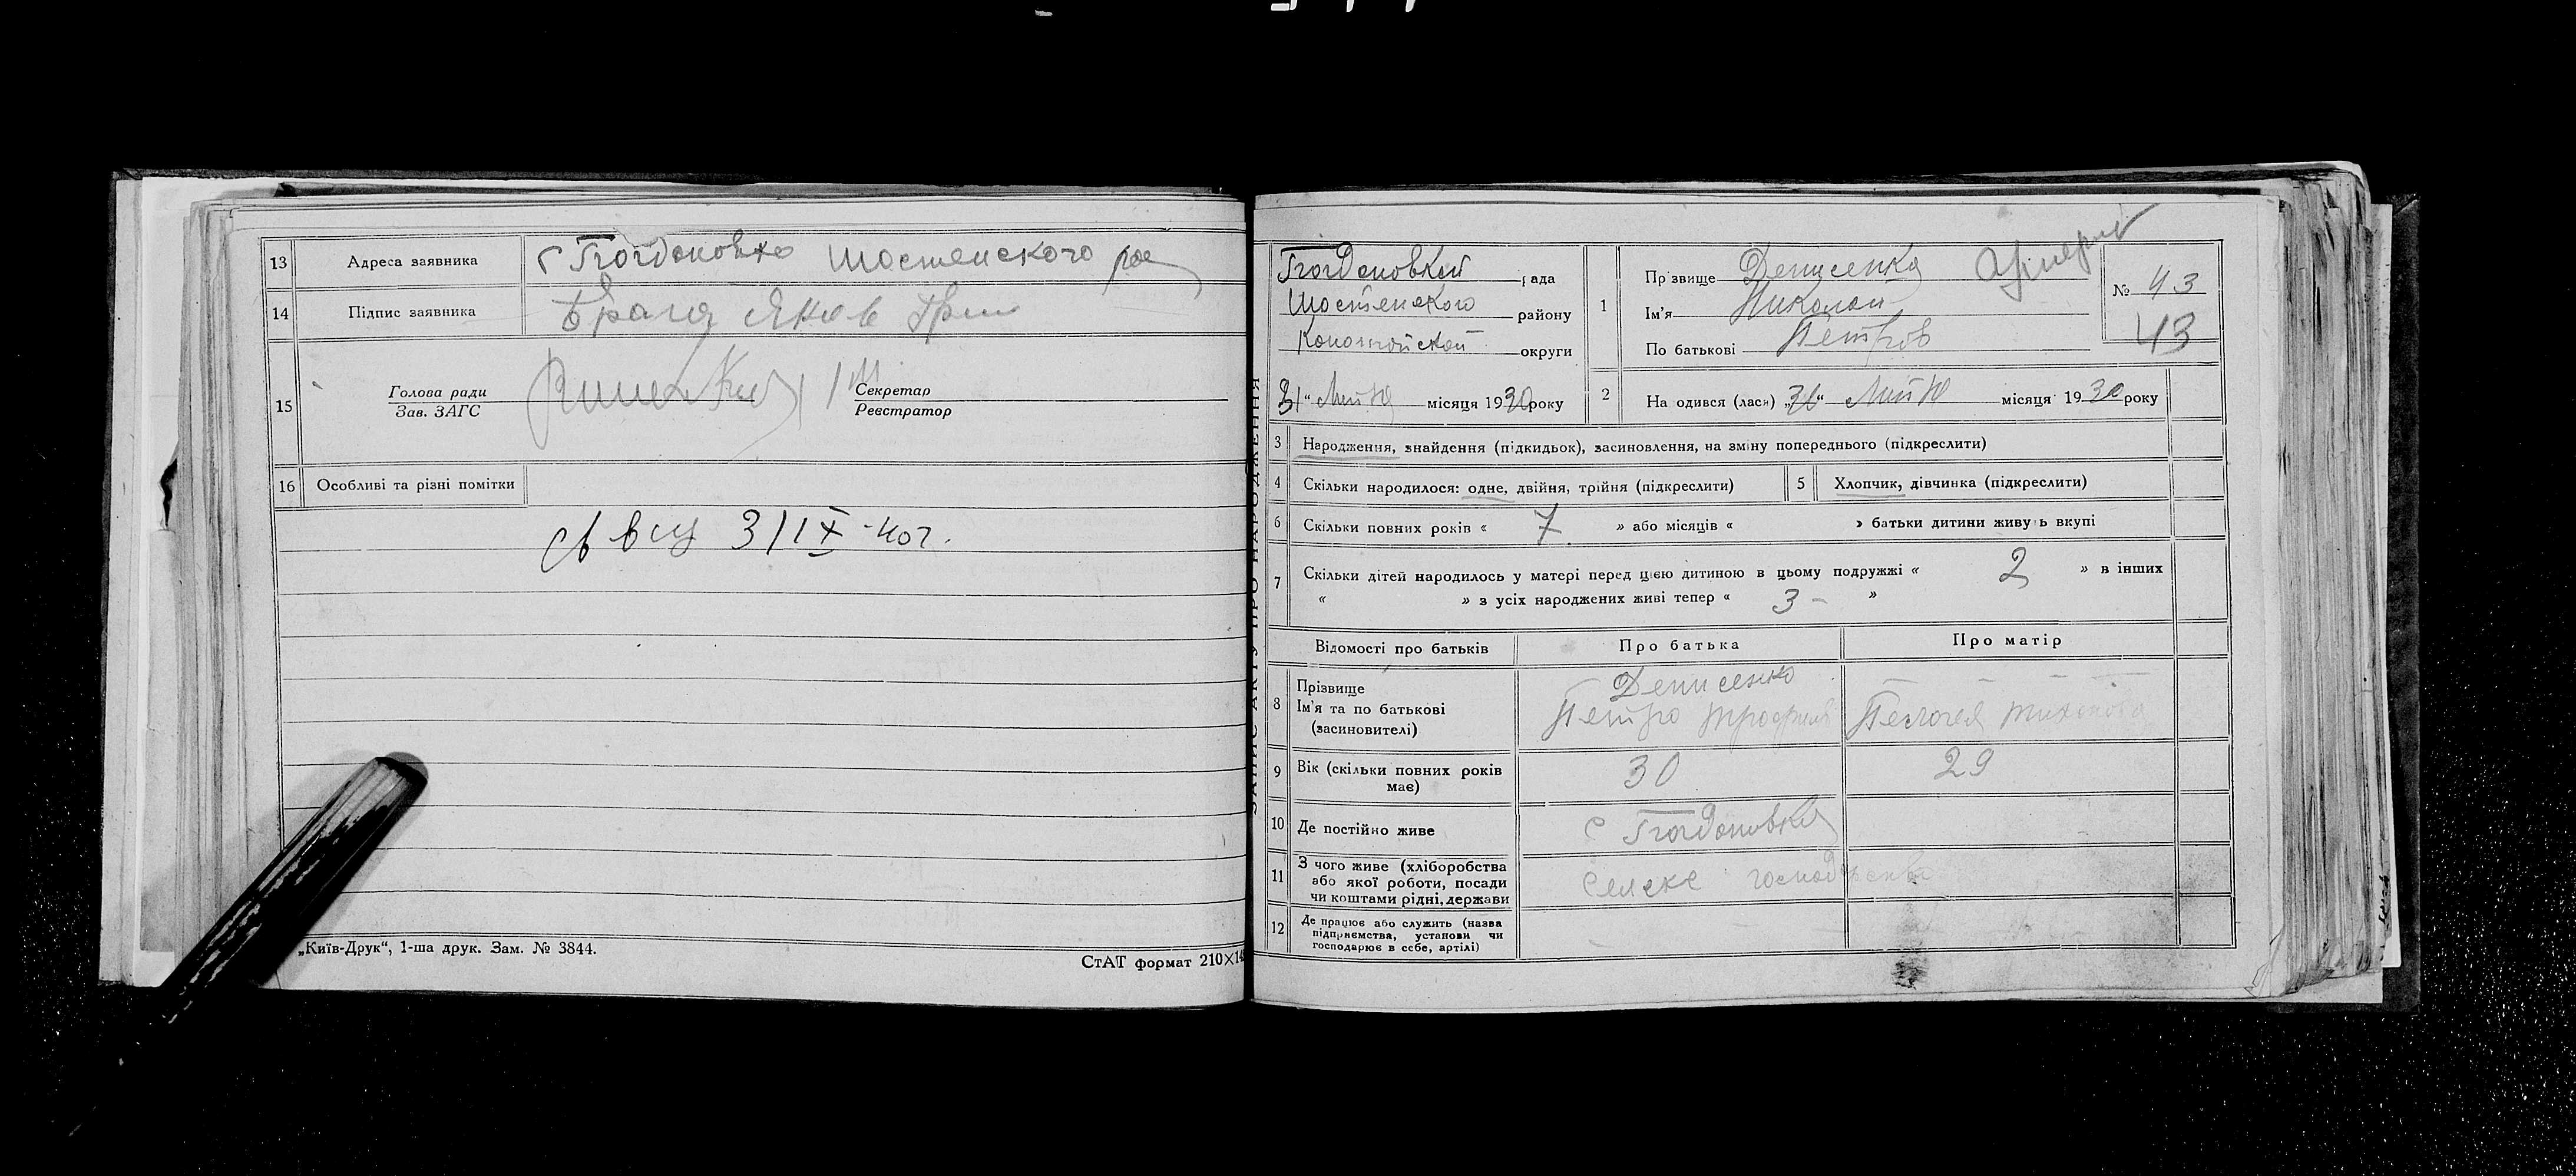 13 Адреса заявника с Богдановка Шостенского
14 Підпис заявника Брага Яков
15 Голова ради Секретар
Зав. ЗАГС Реєстратор
16 Особливі та різні помітки
3/IX-40г.
„Київ-Друк“, 1-ша друк. Зам. № 3844.
СтАТ формат 210×14
ЗАПИС АКТУ ПРО НАРОДЖЕННЯ
Богдановкой рада
Шостенского району
Конотопской округи
31 " місяця 1930 року
1 Прізвище Денисенко
Ім'я Николай
По батькові Петров
№ 43
43
2 На одився (лась) „31“ місяця 1930 року
3 Народження, знайдення (підкидьок), засиновлення, на зміну попереднього (підкреслити)
4 Скільки народилося: одне, двійня, трійня (підкреслити) 5 Хлопчик, дівчинка (підкреслити)
6 Скільки повних років « 7 » або місяців « » батьки дитини живуть вкупі
7 Скільки дітей народилось у матері перед цією дитиною в цьому подружжі « 2 » в інших
« » з усіх народжених живі тепер « 3 - »
Відомості про батьків Про батька Про матір
8 Прізвище Денисенко
Ім'я та по батькові Петро
(засиновителі)
9 Вік (скільки повних років 30 29
має)
10 Де постійно живе с Богдановка
11 З чого живе (хліборобства
або якої роботи, посади
чи коштами рідні, держави
12 Де працює або служить (назва
підприємства, установи чи
господарює в себе, артілі)